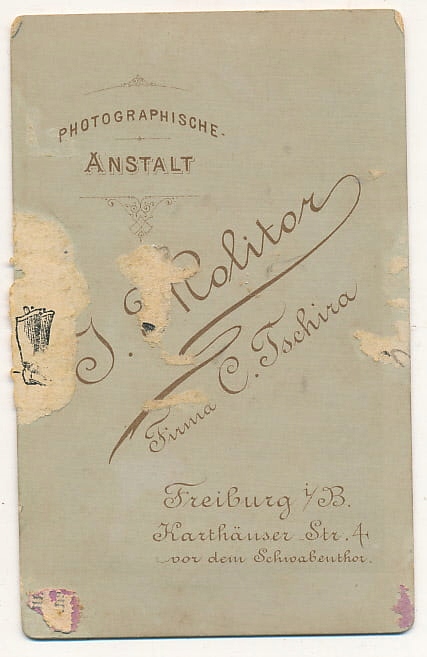 PHOTOGRAPHISCHE-
ANSTALT
J. Molitor
Firma C. Tschira
Freiburg i/B.
Karthäuser Str. 4
vor dem Schwabenthor.